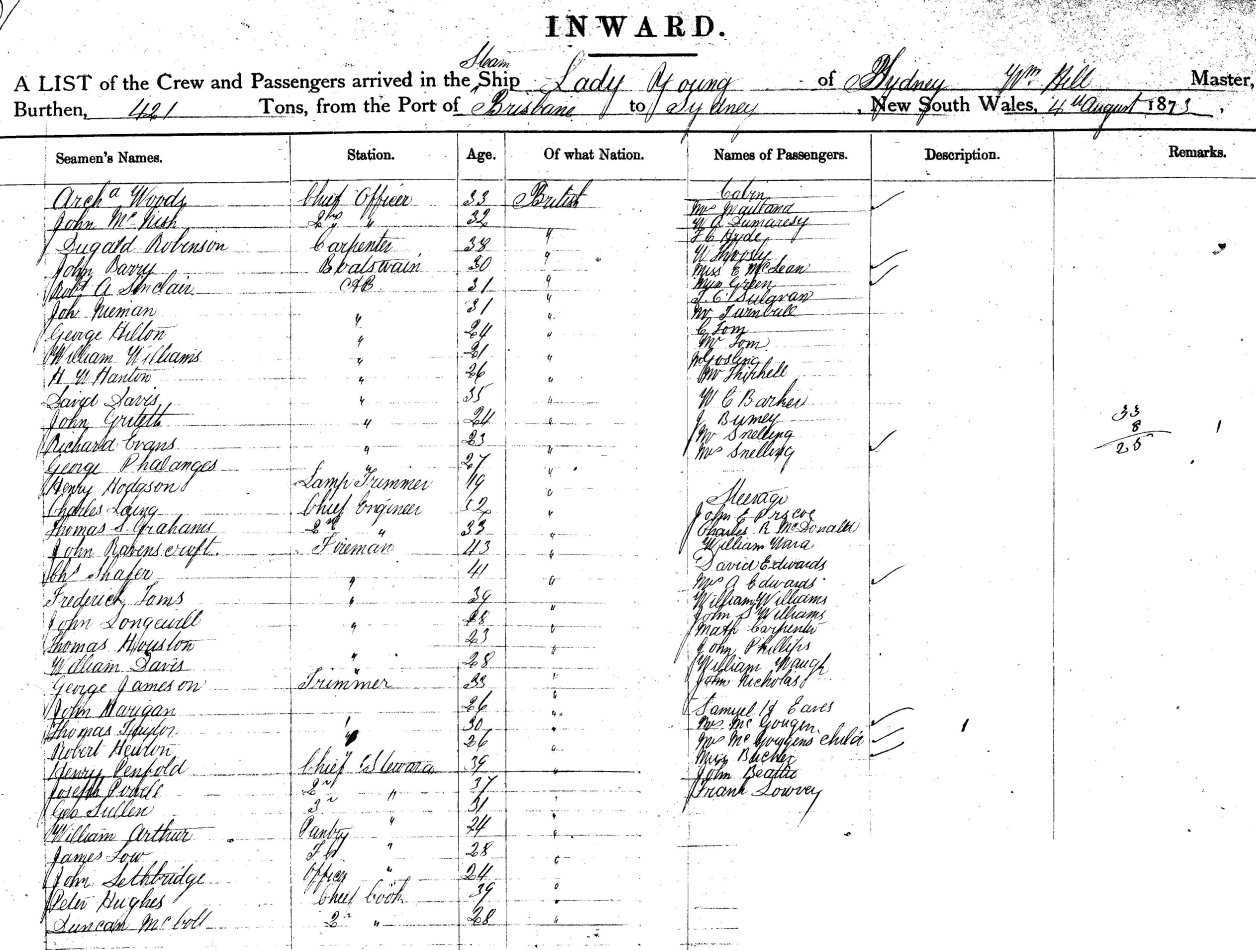 INWARD.
Steam
A LIST of the Crew and Passengers arrived in the Ship Lady Young of Sydney Wm Hill Master,
Burthen, 421 Tons, from the Port of Brisbane to Sydney, New South Wales, 4th August 1873.
Seamen's Names. Station. Age. Of what Nation. Names of Passengers. Description. Remarks.
Archd Woods Chief Officer 33 British Cabin
John McNish 2nd " 32 Mrs
Dugald Robinson Carpenter 38 " W A Dumaresq
F C Hyde
John Barry Boatswain 30 " W
Robt A Sinclair AB 31 " Miss E McLean
Miss Green
Joh Nieman 31 "
George Hilton " 24 " Mr Turnbull
William Williams " 21 " C Tom
Mr Tom
H W Hanton " 26 " Gosling
David Davis " 35 " W C Barker
John " 24 " J
Richard Evans 23 " Mr Snelling
George Phalanges " 27 " Mrs Snelling
33
8
25
Henry Hodgson Lamp Trimmer 19 "
Charles Laing Chief Engineer 52 " Steerage
Thomas S. Grahams 2nd " 33 " John E
John Ravenscroft Fireman 43 " Charles R McDonald
William Wara
Chs Shafer " 41 " David Edwards
Mrs A Edwards
Frederick Toms " 39 " William Williams
John " 28 " John S Williams
Thomas Houston " 23 " Carpenter
William Davis " 28 " John Phillips
William Waugh
George Jameson Trimmer 33 " John Nicholas
John Harigan 26 " Samuel Eaves
Thomas Taylor " 30 " Mrs
Robert Hewton " 26 " Mrs child
Henry Penfold Chief Steward 39 " Miss
Joseph 2nd " 37 " John Beattie
Geo Sullen 3rd " 31 " Frank Lowrey
William Arthur Pantry " 24 "
James Low " 28 "
John Lethbridge Officers " 24 "
Peter Hughes Chief Cook 39 "
Duncan 2nd " 28 "